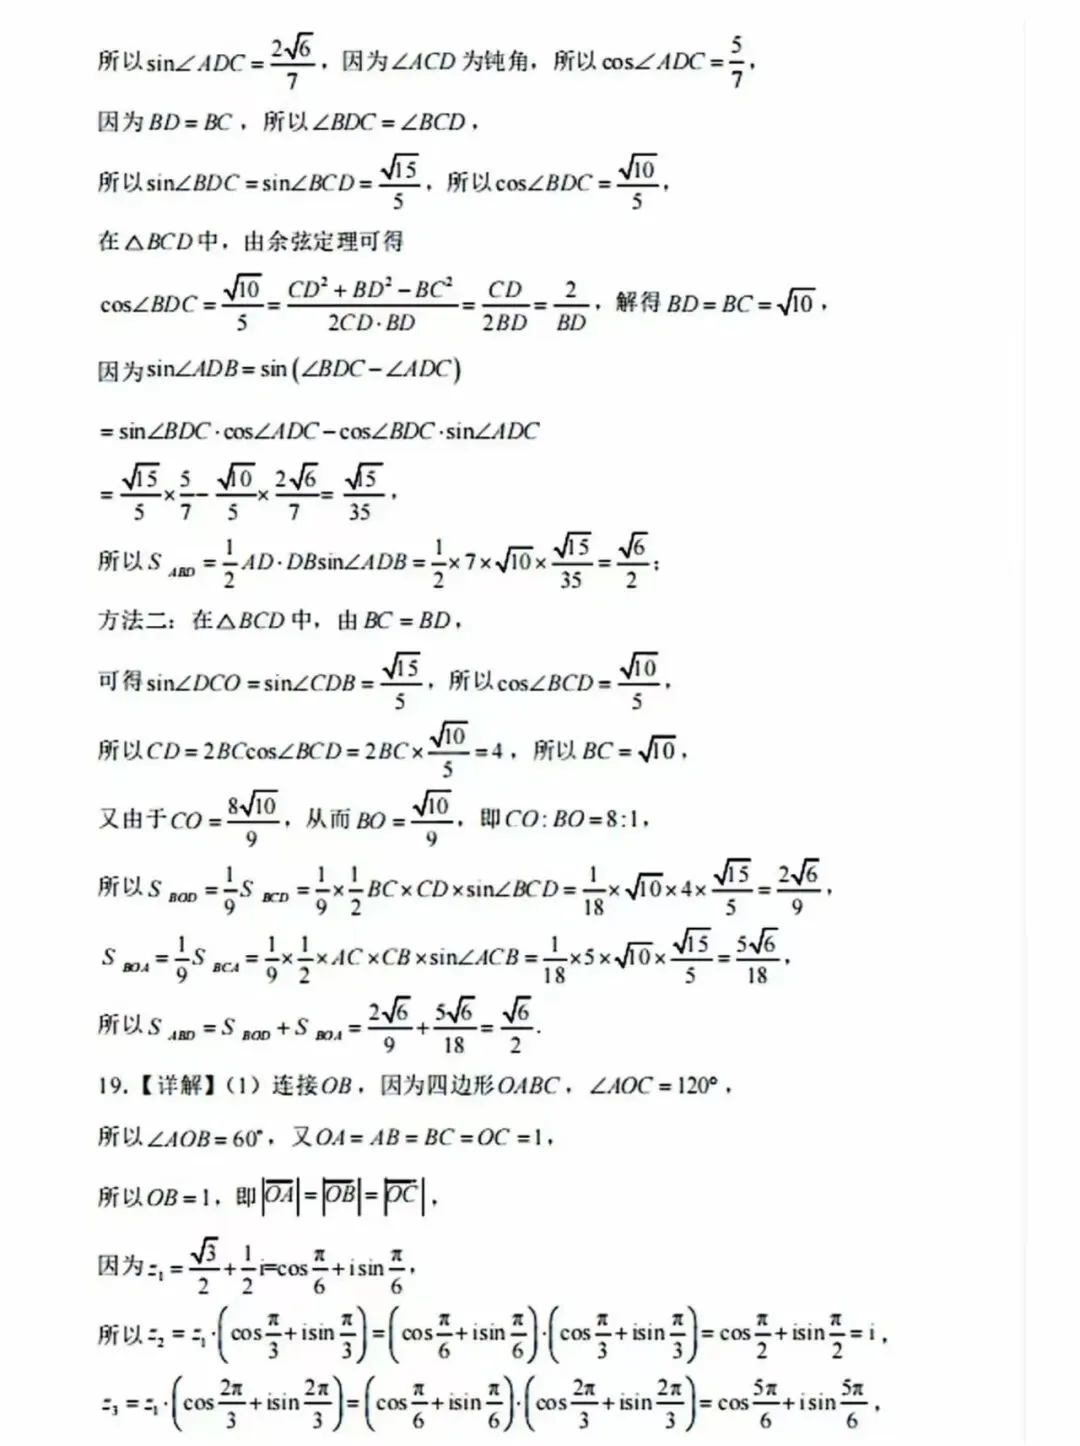 所以sin∠ADC=2√6/7，因为∠ACD为钝角，所以cos∠ADC=5/7，
因为BD=BC，所以∠BDC=∠BCD，
所以sin∠BDC=sin∠BCD=√15/5，所以cos∠BDC=√10/5，
在△BCD中，由余弦定理可得
cos∠BDC=√10/5=(CD²+BD²-BC²)/(2CD·BD)=CD/(2BD)=2/BD，解得BD=BC=√10，
因为sin∠ADB=sin(∠BDC-∠ADC)
=sin∠BDC·cos∠ADC-cos∠BDC·sin∠ADC
=√15/5×5/7-√10/5×2√6/7=√15/35，
所以S ABD=1/2AD·DBsin∠ADB=1/2×7×√10×√15/35=√6/2；
方法二：在△BCD中，由BC=BD，
可得sin∠DCO=sin∠CDB=√15/5，所以cos∠BCD=√10/5，
所以CD=2BCcos∠BCD=2BC×√10/5=4，所以BC=√10，
又由于CO=8√10/9，从而BO=√10/9，即CO:BO=8:1，
所以S BOD=1/9S BCD=1/9×1/2BC×CD×sin∠BCD=1/18×√10×4×√15/5=2√6/9，
S BOA=1/9S BCA=1/9×1/2×AC×CB×sin∠ACB=1/18×5×√10×√15/5=5√6/18，
所以S ABD=S BOD+S BOA=2√6/9+5√6/18=√6/2.
19.【详解】（1）连接OB，因为四边形OABC，∠AOC=120°，
所以∠AOB=60°，又OA=AB=BC=OC=1，
所以OB=1，即|OA|=|OB|=|OC|，
因为z₁=√3/2+1/2i=cosπ/6+isinπ/6，
所以z₂=z₁·(cosπ/3+isinπ/3)=(cosπ/6+isinπ/6)·(cosπ/3+isinπ/3)=cosπ/2+isinπ/2=i，
z₃=z₁·(cos2π/3+isin2π/3)=(cosπ/6+isinπ/6)·(cos2π/3+isin2π/3)=cos5π/6+isin5π/6，